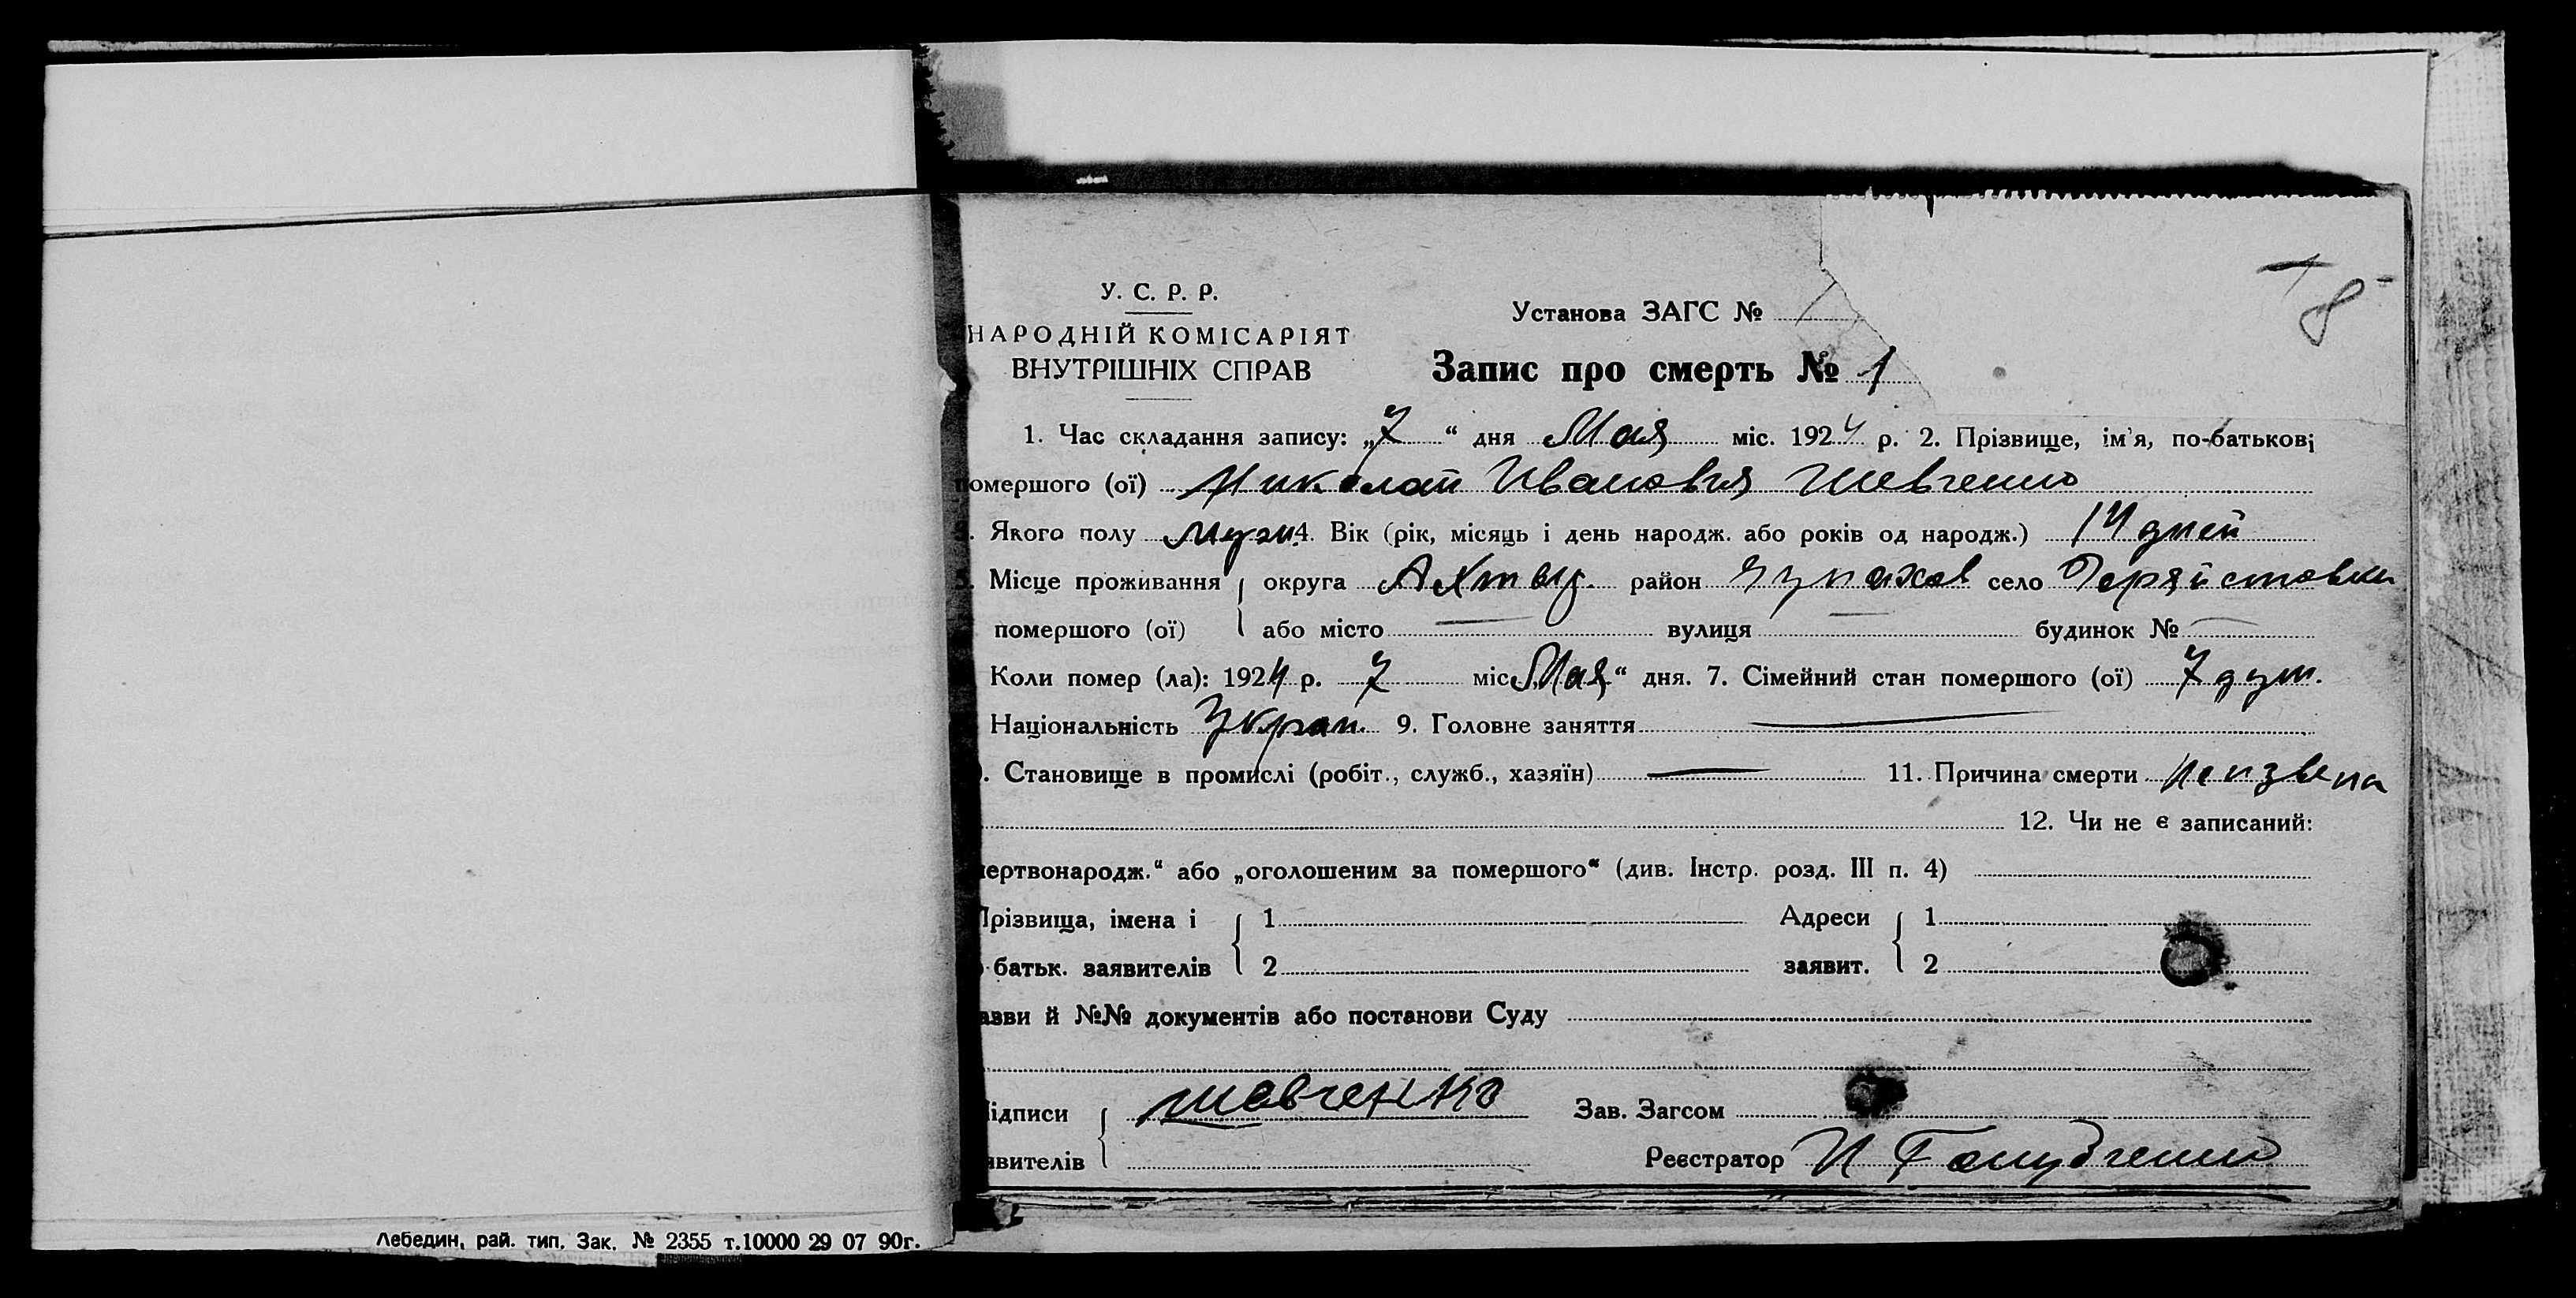 У. С. Р. Р.
НАРОДНІЙ КОМІСАРІЯТ
ВНУТРІШНІХ СПРАВ
8
Установа ЗАГС №
Запис про смерть № 1
1. Час складання запису: „7“ дня Мая міс. 1924 р. 2. Прізвище, ім'я, по-батькові
помершого (ої) Николай Иванович Шевченко
3. Якого полу муж 4. Вік (рік, місяць і день народж. або років од народж.) 14 дней
5. Місце проживання округа Ахтыр. район Чупахов село
помершого (ої) або місто — вулиця — будинок № —
Коли помер (ла): 1924 р. 7 міс „Мая“ дня. 7. Сімейний стан помершого (ої) 7 душ.
Національність Украи. 9. Головне заняття —
). Становище в промислі (робіт., служб., хазяїн) — 11. Причина смерти
12. Чи не є записаний:
мертвонародж.“ або „оголошеним за помершого“ (див. Інстр. розд. III п. 4)
Прізвища, імена і 1 Адреси 1
батьк. заявителів 2 заявит. 2
азви й №№ документів або постанови Суду
ідписи Шевченко Зав. Загсом
явителів Реєстратор И Голубченко
Лебедин, рай. тип. Зак. № 2355 т.10000 29 07 90г.